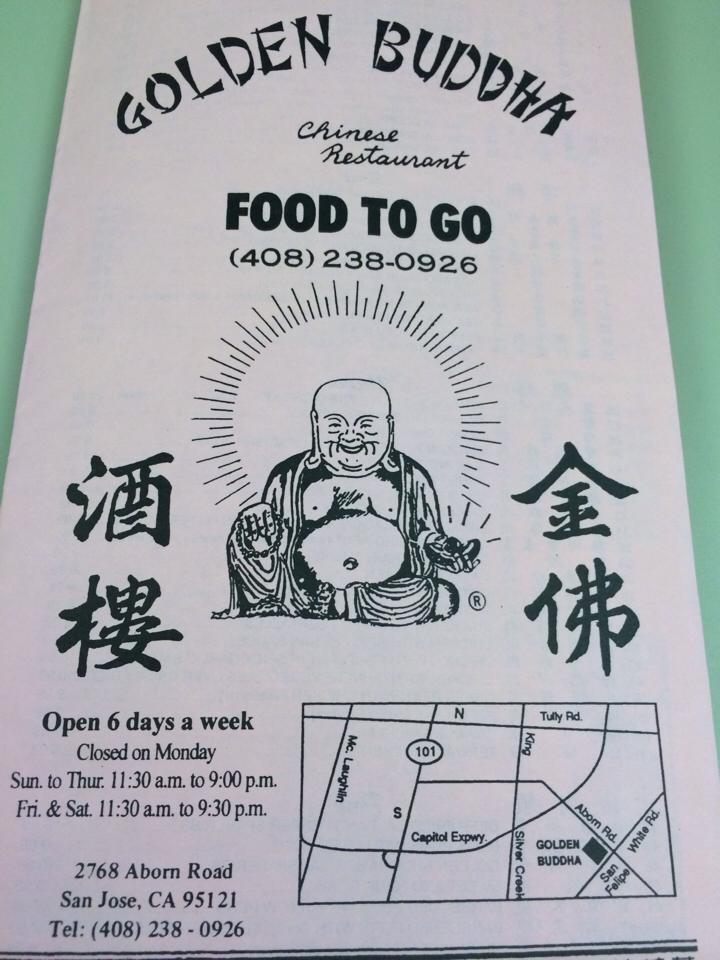 GOLDEN BUDDHA
Chinese
Restaurant
FOOD TO GO
(408) 238-0926
金佛
酒樓
®
Open 6 days a week
Closed on Monday
Sun. to Thur. 11:30 a.m. to 9:00 p.m.
Fri. & Sat. 11:30 a.m. to 9:30 p.m.
2768 Aborn Road
San Jose, CA 95121
Tel: (408) 238 - 0926
N
Tully Rd.
Mc. Laughlin
101
King
S
Capitol Expwy.
Silver Creek
Aborn Rd.
White Rd.
GOLDEN
BUDDHA
San
Felipe